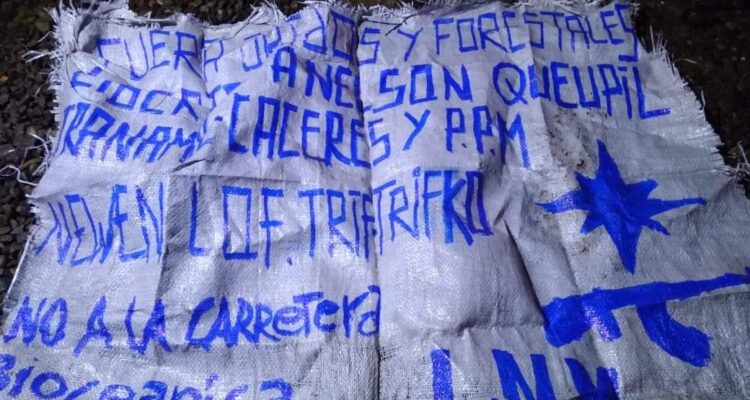 FUERA Y FORESTALES
A NELSON QUEUPIL
CACERES Y P.P.M
NEWEN LOF. TRIFKO
NO A LA CARRETERA
Bioceanica L.N.M